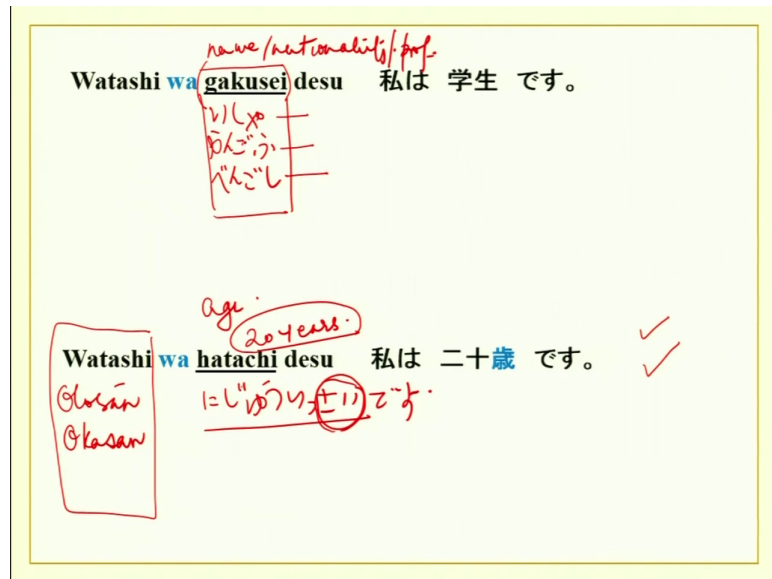 name/nationality/prof.
Watashi wa gakusei desu 私は 学生 です。
いしゃ
かんごふ
べんごし
age.
20 years.
Watashi wa hatachi desu 私は 二十歳 です。
Otosan にじゅういっさいです.
Okasan